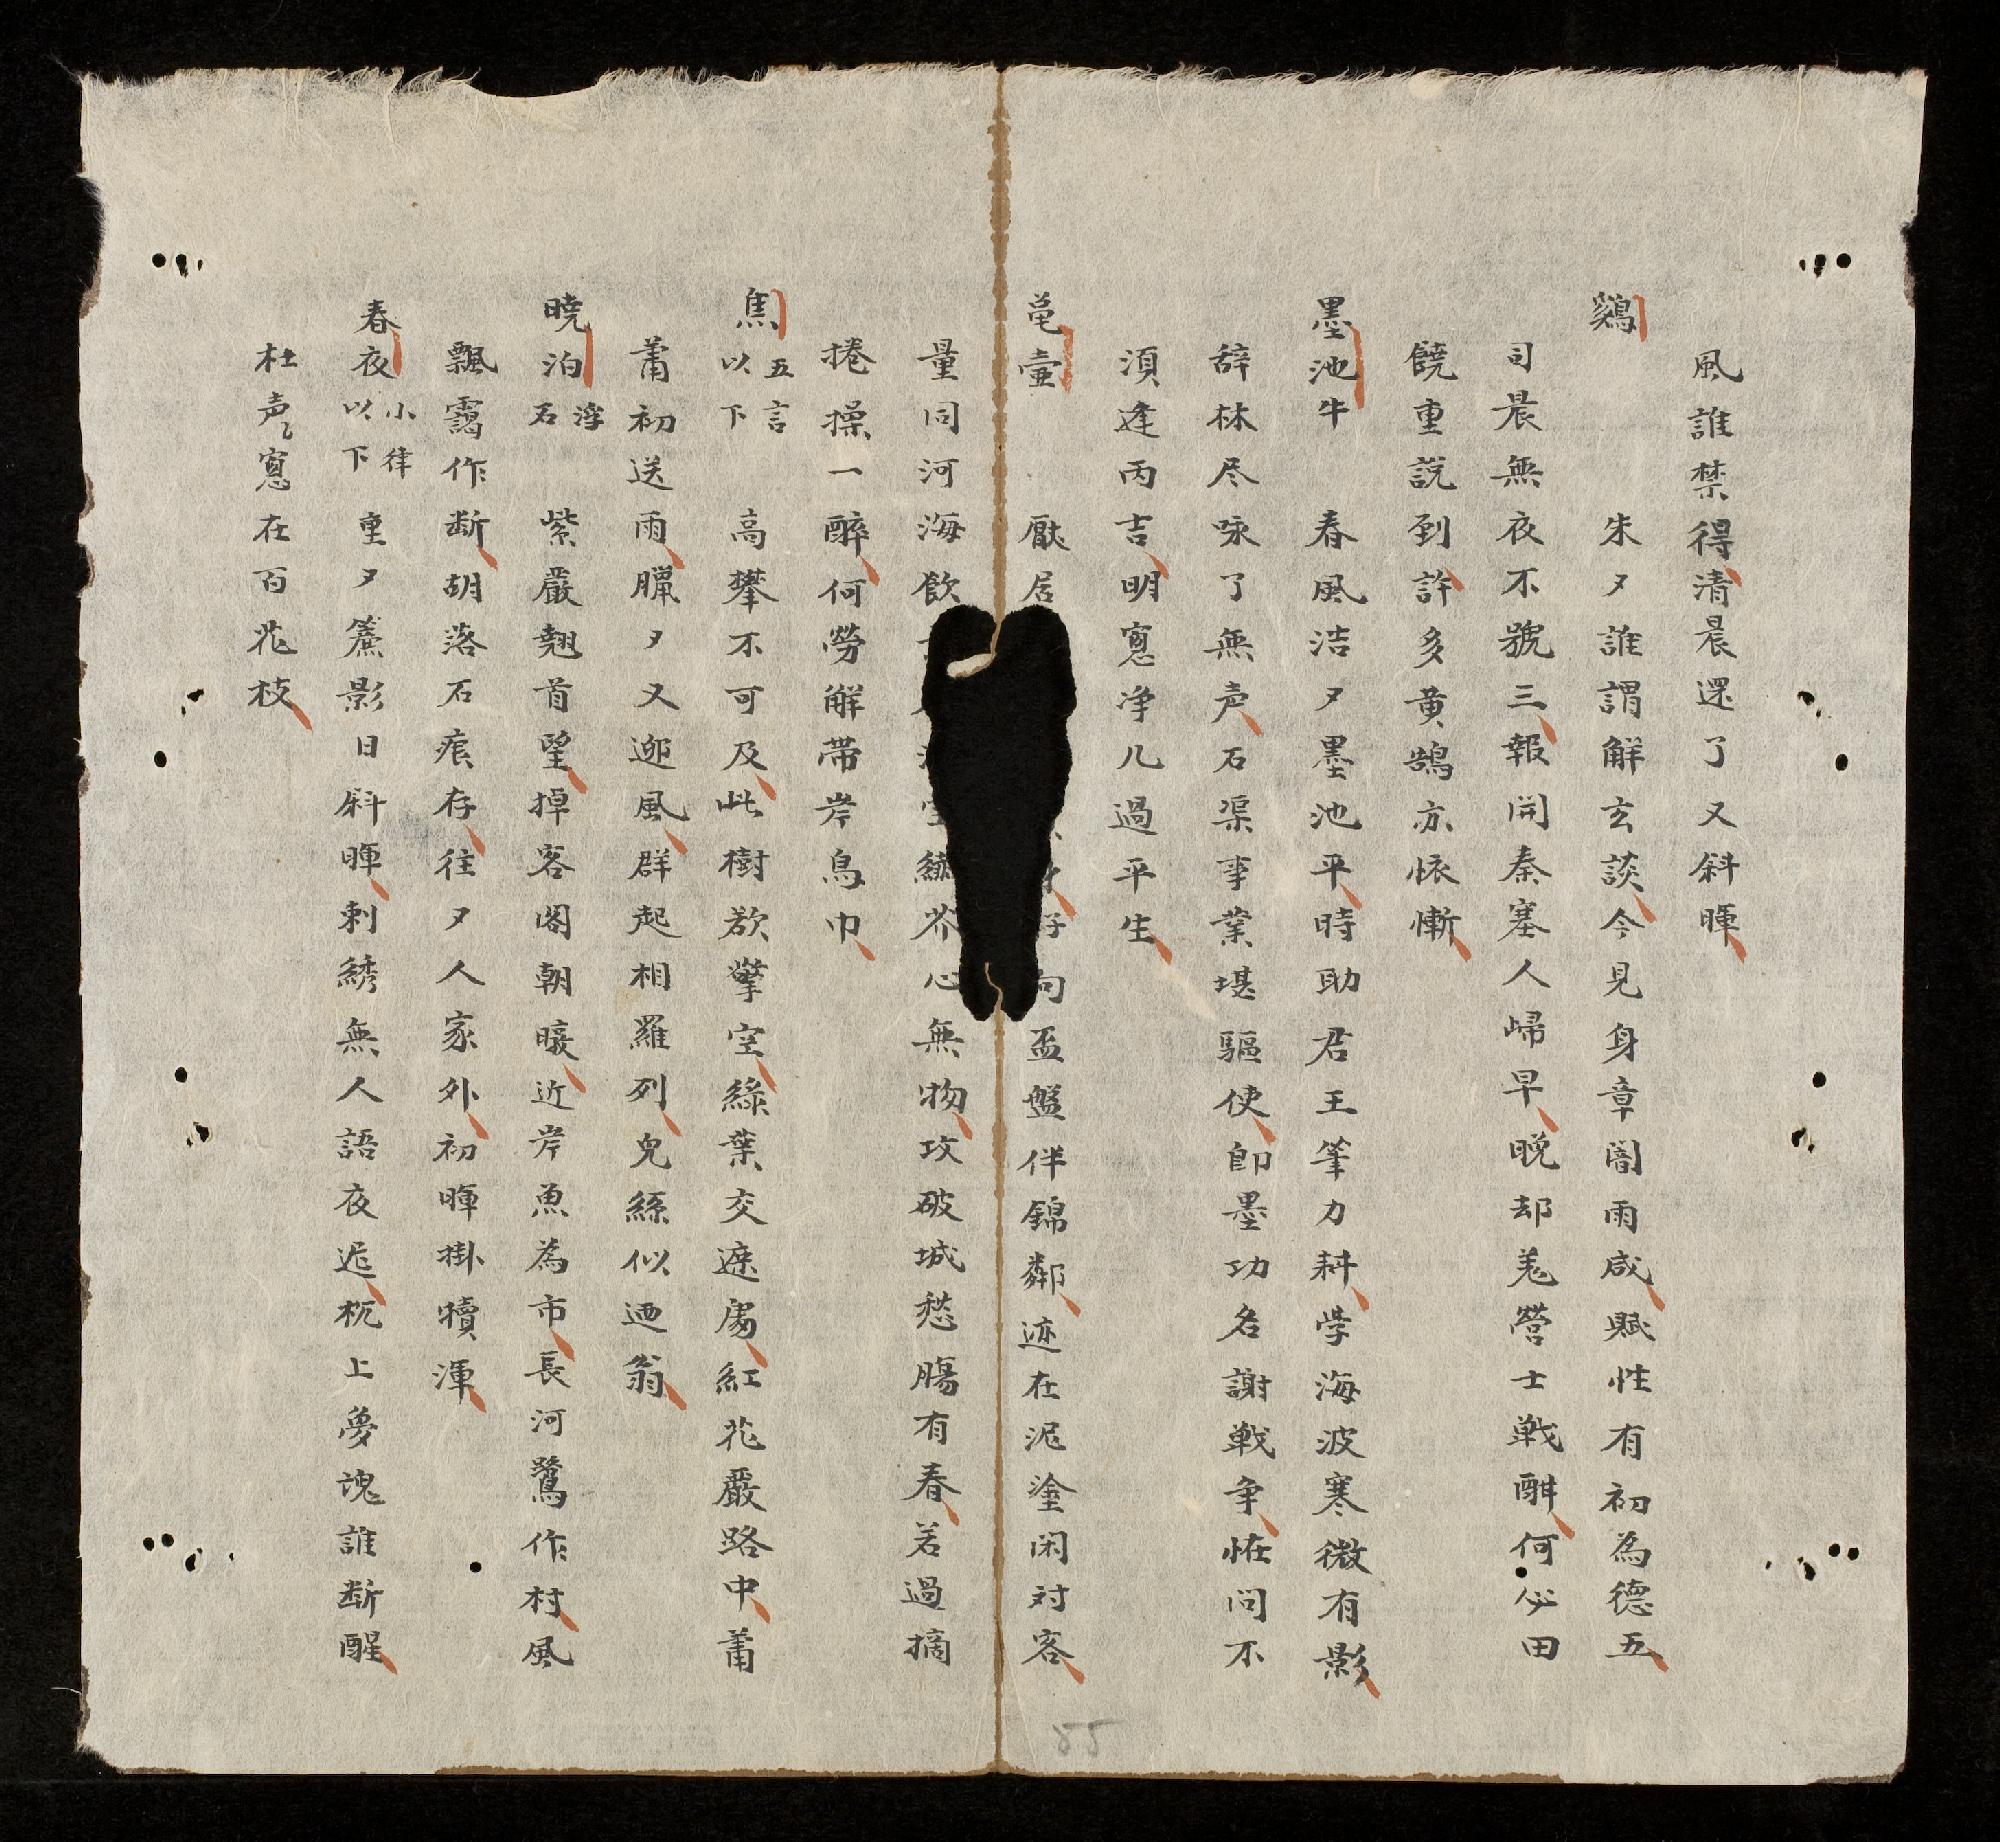 風誰禁得清晨還了又斜暉
鷄　朱々誰謂解玄談今見身章闇雨咸賦性有初為德五
司晨無夜不號三報開秦塞人歸早晚却羌營士戦酣何必田
饒重説到許多黄鵠亦悵慚
墨池牛　春風洁々墨池平時助君王筆力耕学海波寒微有影
辞林尽咏了無声石渠事業堪驅使即墨功名謝戦争恠問不
湏逢丙吉明窓净几過平生
亀壷　厭居好向盃盤伴錦鄰迹在泥塗闲対客
量同河海飲纎芥心無物攻破城愁腸有春若過摘
捲操一醉何勞解帯岸烏巾
焦　五言以下　高攀不可及此樹欲擎空綠葉交遮紅花嚴路中莆
莆初送雨臘々又迎風群起相羅列兒絲似迺翁
暁泊　浮石　紫嚴翹首望掉客閣朝暾近岸魚為市長河鷺作村風
飄靄作断胡落石痕存往々人家外初暉掛犢渾
春夜　小律以下　重々簾影日斜暉刺綉無人語夜遅枕上夢魂誰断醒
杜声々窓在百花枝